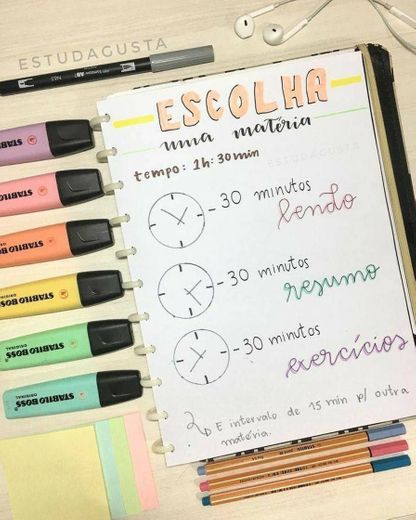 ESTUDAGUSTA
ESCOLHA
uma matéria
ESTUDAGUSTA
tempo: 1h:30min
- 30 minutos
lendo
- 30 minutos
resumo
- 30 minutos
exercícios
E intervalo de 15 min p/ outra
matéria.
STABILO BOSS
ORIGINAL
STABILO BOSS
STABILO BOSS
STABILO BOSS
ORIGINAL
STABILO BOSS
ORIGINAL
STABILO BOSS
ORIGINAL